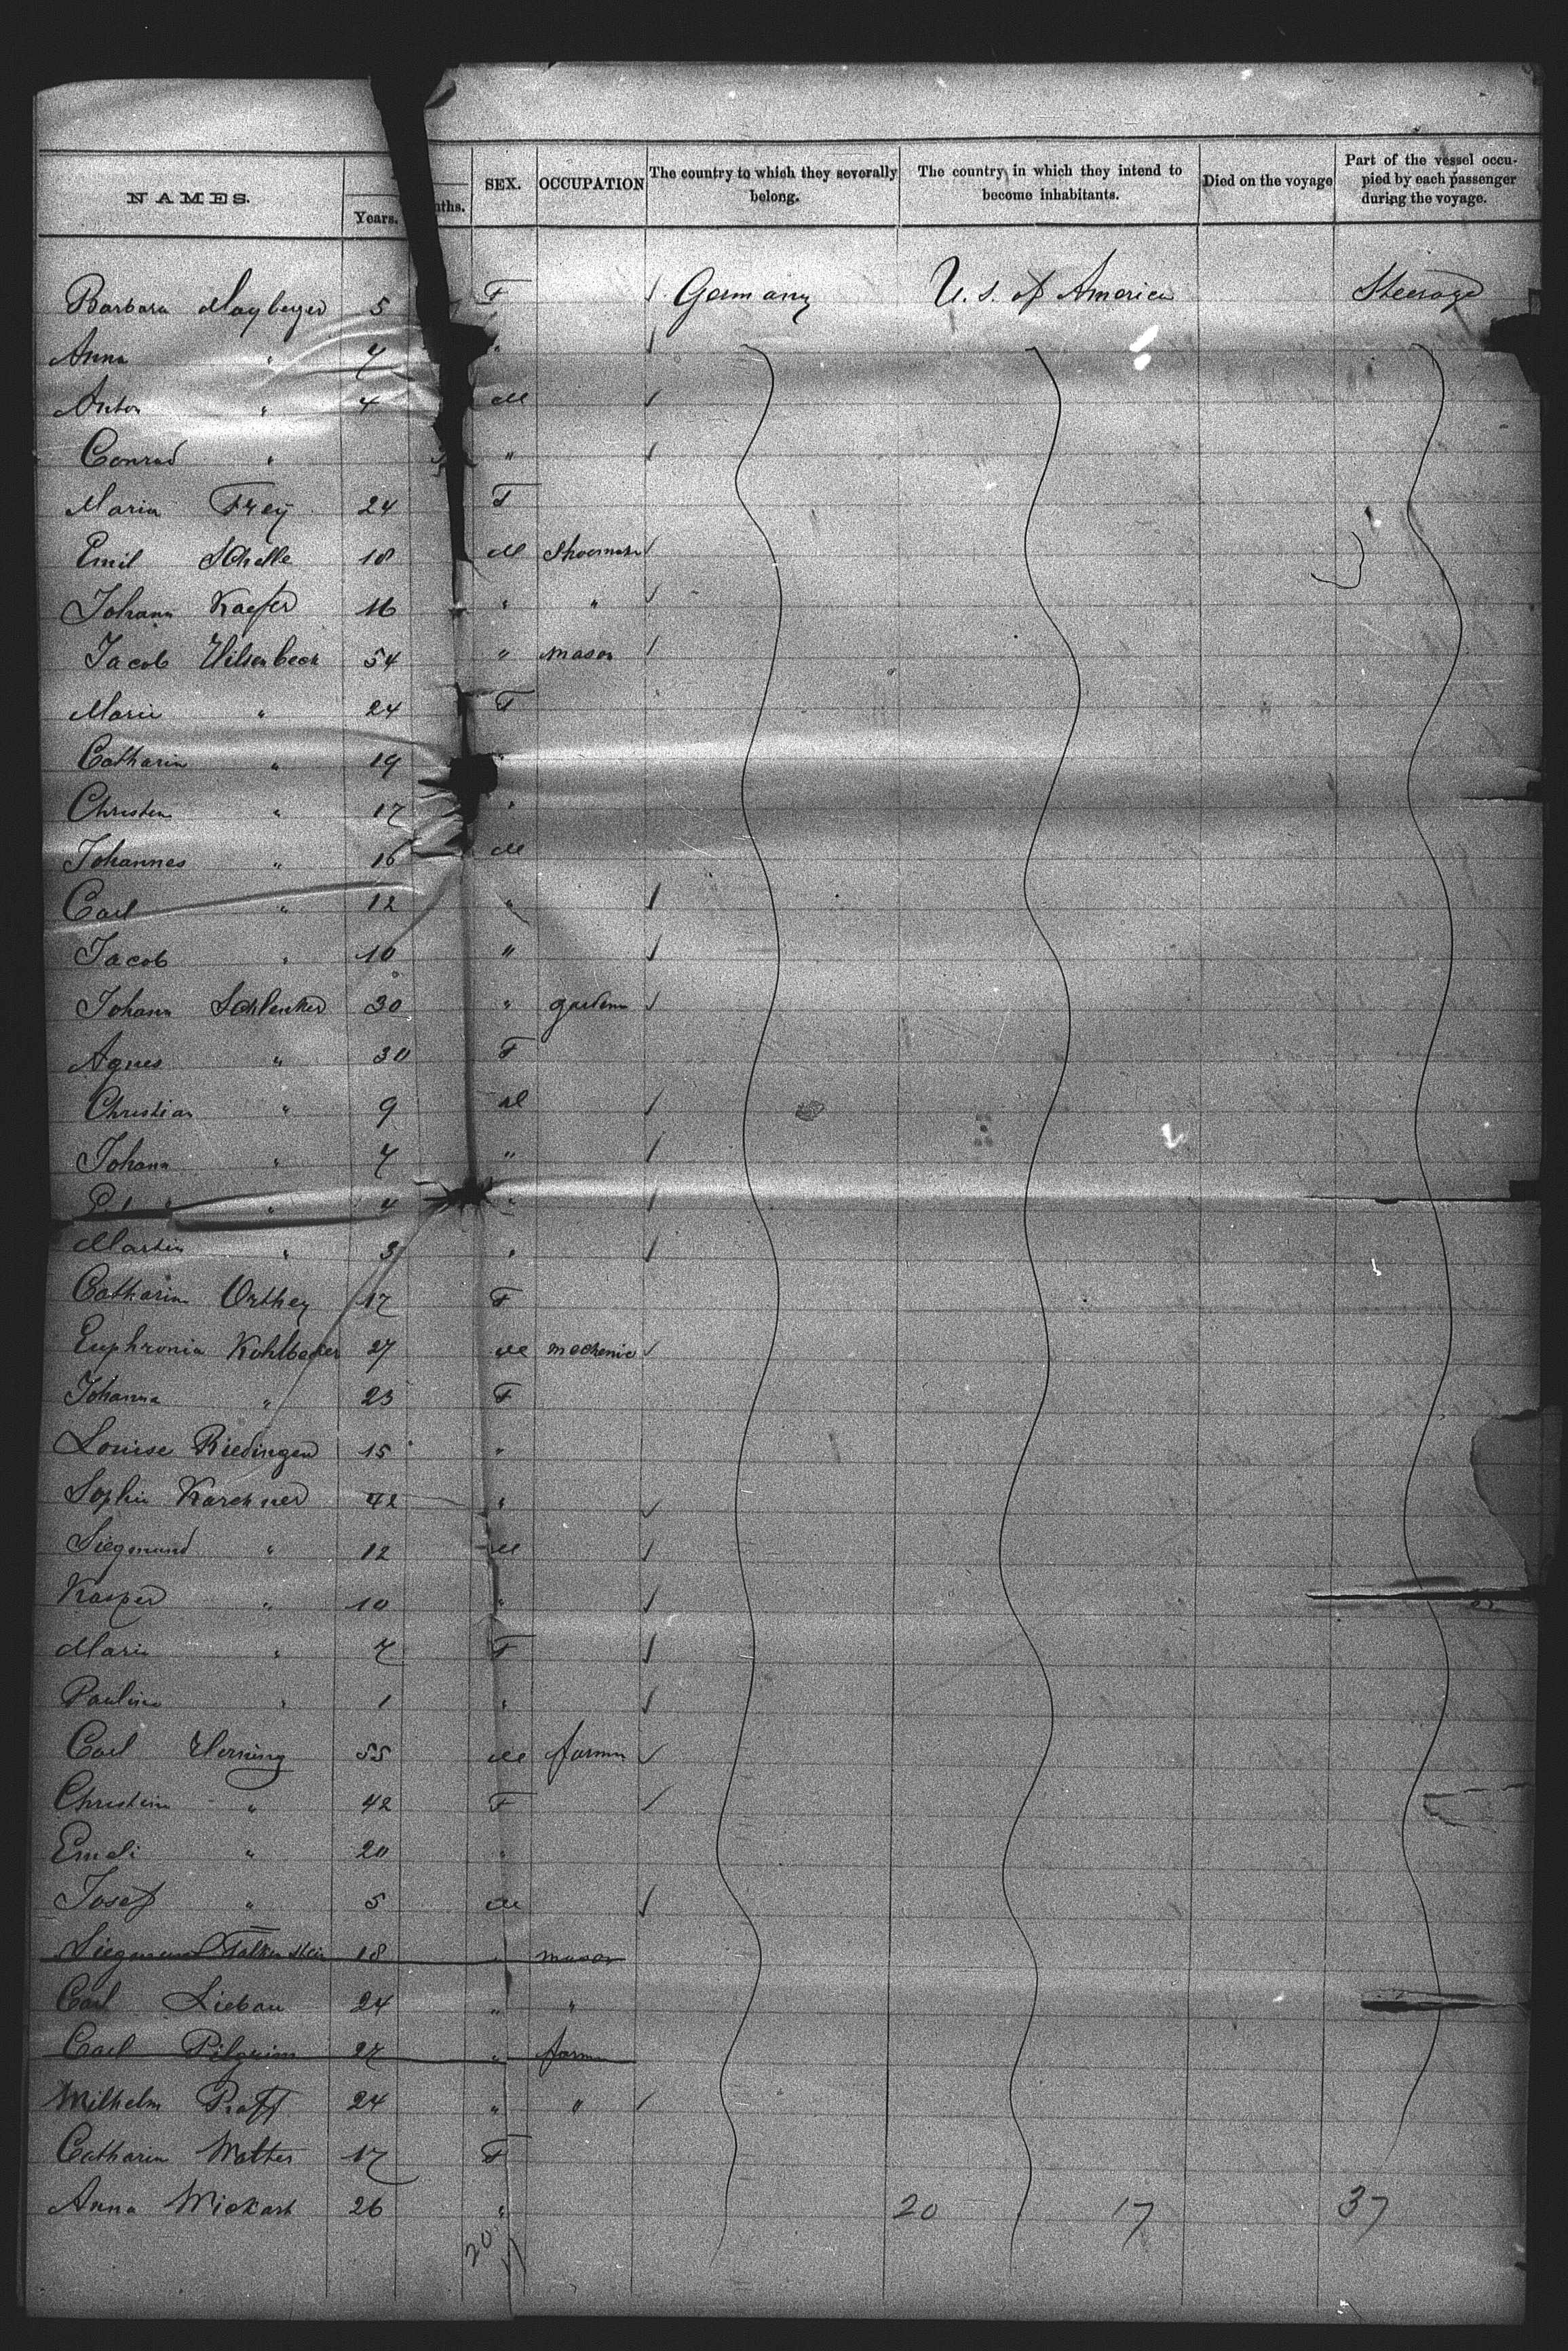 NAMES. Years. nths. SEX. OCCUPATION The country to which they severally belong. The country in which they intend to become inhabitants. Died on the voyage Part of the vessel occupied by each passenger during the voyage.
Barbara Mayberger 5 F Germany U. S. of America Steerage
Anna " 7 "
Anton " 4 M
Conrad " "
Maria Frey 24 F
Emil Schelle 18 M Shoemak
Johann Kaefer 16 " "
Jacob Hilsenbeck 54 " mason
Marie " 24 F
Catharin " 19 "
Christin " 17 "
Johannes " 16 M
Carl " 12 "
Jacob " 10 "
Johann Schlenker 30 " garden
Agnes " 30 F
Christian " 9 M
Johann " 7 "
" 4 "
Martin " 3 "
Catharin Orthey 17 F
Euphronia Kohlbecker 27 M mechanic
Johanna " 23 F
Louise Riedinger 15 "
Sophie Karchner 42 "
Siegmund " 12 M
Kasper " 10 "
Marie " 7 F
Pauline " 1 "
Carl Horning 55 M farmer
Christin " 42 F
Emeli " 20 "
Josef " 5 M
Siegmund Falkenstein 18 " mason
Carl Liebau 24 " "
Carl Pilgrim 27 " farmer
Wilhelm Praff 24 " "
Catharin Walter 17 F
Anna Wickart 26 " 20 17 37
20 17